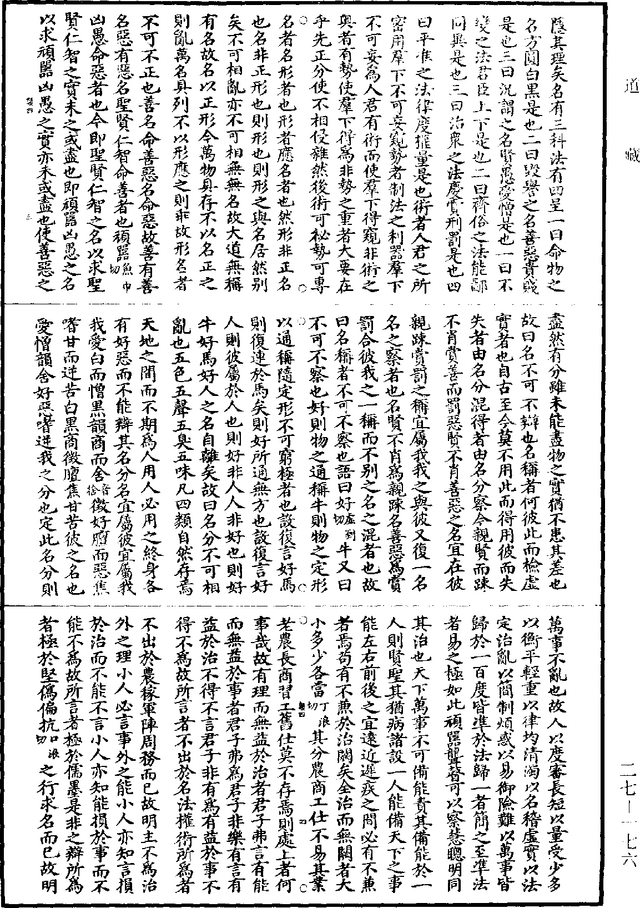 道藏
隱其理矣名有三科法有四呈一曰命物之
名方圓白黑是也二曰毀譽之名善惡貴賤
是也三曰況謂之名賢愚愛憎是也一曰不
變之法君臣上下是也二曰齊俗之法能鄙
同異是也三曰治衆之法慶賞刑罰是也四
曰平准之法律度權量是也術者人君之所
密用羣下不可妄窺勢者制法之利器羣下
不可妄爲人君有術而使羣下得窺非術之
奧者有勢使羣下得爲非勢之重者大要在
乎先正分使不相侵雜然後術可秘勢可專
名者名形者也形者應名者也然形非正名
也名非正形也則形之與名居然別
矣不可相亂亦不可相無無名故大道無稱
有名故名以正形今萬物具存不以名正之
則亂萬名具列不以形應之則乖故形名者
不可不正也善名命善惡名命惡故善有善
名惡有惡名聖賢仁智命善者也頑嚚魚巾切
凶愚命惡者也今即聖賢仁智之名以求聖
賢仁智之實未之或盡也即頑嚚凶愚之名
以求頑嚚凶愚之實亦未或盡也使善惡之
盡然有分雖未能盡物之實猶不患其差也
故曰名不可不辯也名稱者何彼此而檢虛
實者也自古至今莫不用此而得用彼而失
失者由名分混得者由名分察今親賢而踈
不肖賞善而罰惡賢不肖善惡之名宜在彼
親踈賞罰之稱宜屬我我之與彼又復一名
名之察者也名賢不肖爲親踈名善惡爲賞
罰合彼我之一稱而不別之名之混者也故
曰名稱者不可不察也語曰好虛到切牛又曰
不可不察也好則物之通稱牛則物之定形
以通稱隨定形不可窮極者也設復言好馬
則復連於馬矣則好所通無方也設復言好
人則彼屬於人也則好非人人非好也則好
牛好馬好人之名自離矣故曰名分不可相
亂也五色五聲五臭五味凡四類自然存焉
天地之間而不期爲人用人必用之終身各
有好惡而不能辯其名分名宜屬彼宜屬我
我愛白而憎黑韻商而舍音捨徵好膻而惡焦
嗜甘而逆苦白黑商徵膻焦甘苦彼之名也
愛憎韻舍好惡嗜逆我之分也定此名分則
萬事不亂也故人以度審長短以量受少多
以衡平輕重以律均清濁以名稽虛實以法
定治亂以簡制煩惑以易御險難以萬事皆
歸於一百度皆準於法歸一者簡之至準法
者易之極如此頑嚚聾瞽可以察慧聰明同
其治也天下萬事不可備能責其備能於一
人則賢聖其猶病諸設一人能備天下之事
能左右前後之宜遠近遲疾之間必有不兼
者焉苟有不兼於治闕矣全治而無闕者大
小多少各當丁浪切其分農商工仕不易其業
老農長商習工舊仕莫不存焉則處上者何
事哉故有理而無益於治者君子弗言有能
而無益於事者君子弗爲君子非樂有言有
益於治不得不言君子非有爲有益於事不
得不爲故所言者不出於名法權術所爲者
不出於農稼軍陣周務而已故明主不爲治
外之理小人必言事外之能小人亦知言損
於治而不能不言小人亦知能損於事而不
能不爲故所言者極於儒墨是非之辯所爲
者極於堅僞偏抗口浪切之行求名而已故明
二七—一七六